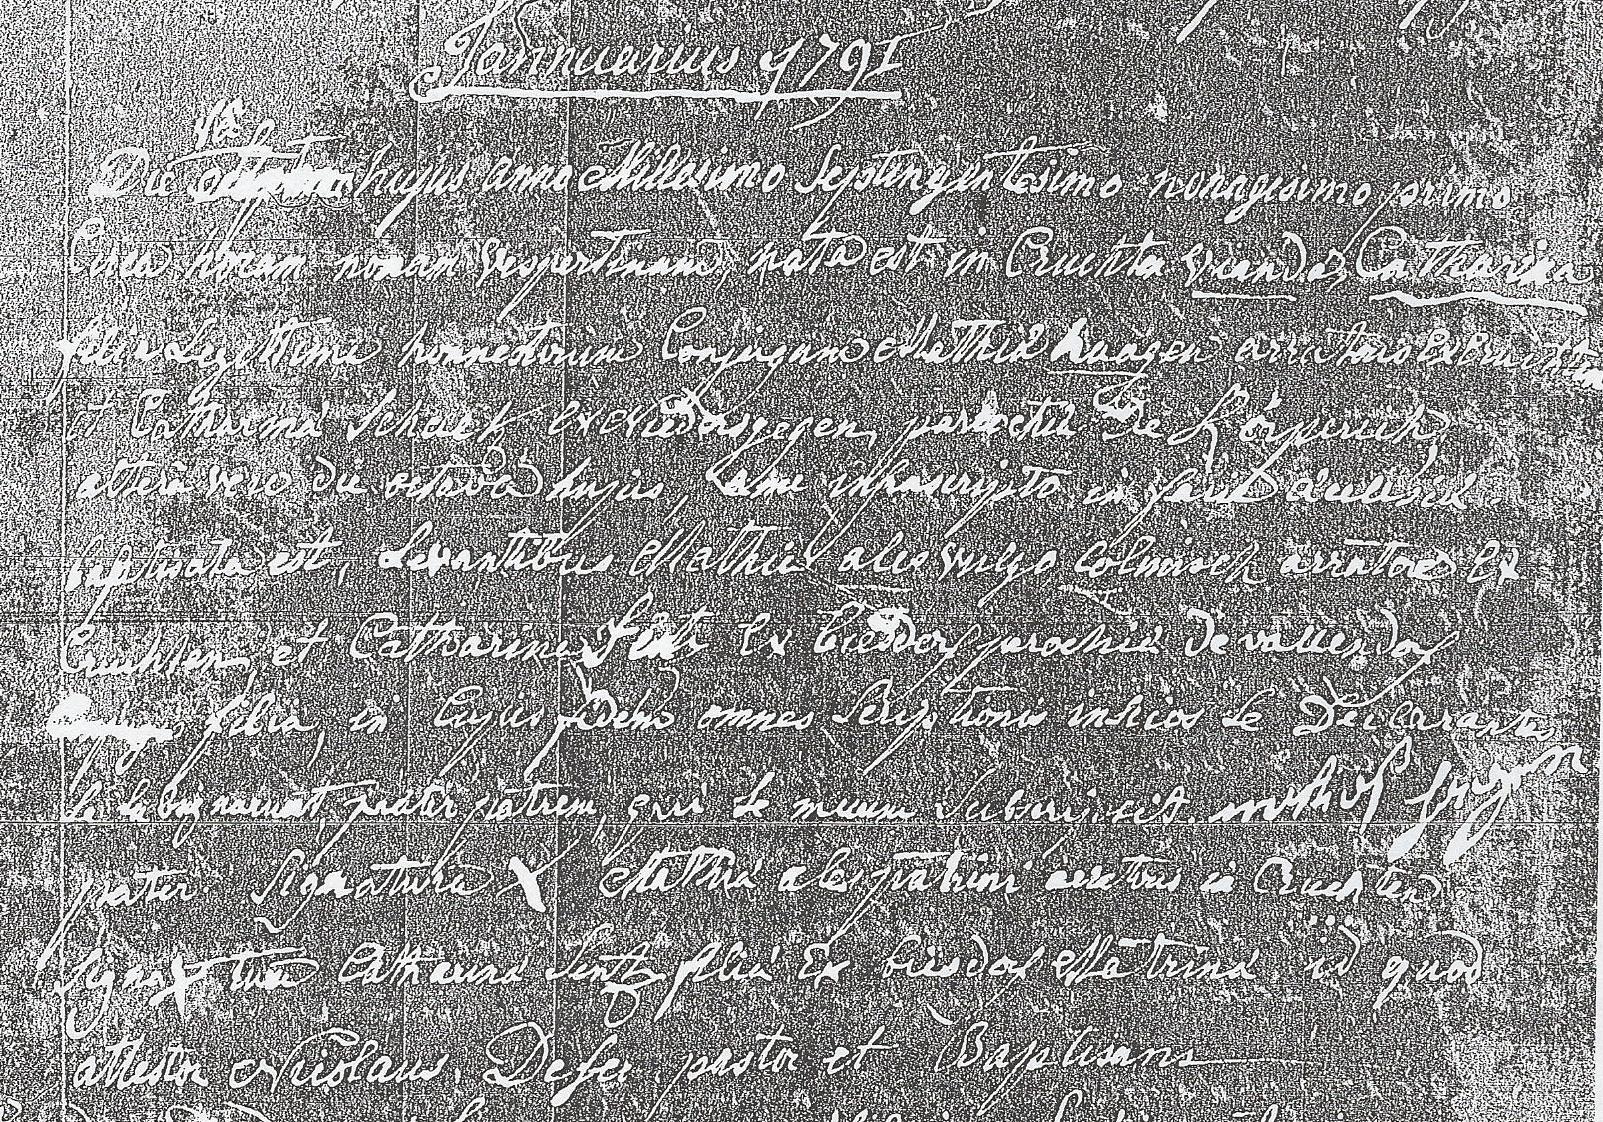 Januarius 1791
Die hujus anno Millesimo Septengintesimo nonagesimo primo
Circa horam nonam vespertinam, nata est in Cruchten Catharina
filia Legittima honnestorum Conjugum Mathiä Huagen aratoris ex Cruchten
et Catharina ex Niedersgegen, parochiä de Körperich,
altera vero die octava hujus, a me infrascripto in ecclesia
baptisata est, Levantibus Mathia ales vulgo Colmisch arratore Ex
Cruchten, et Catharina Senz Ex biesdorf parochiä de vallendorf
filia, in Cujus fidem omnes scriptionis inscios se Declarantes
patrem, qui se mecum subscripsit. mathis
pater Signatura X Mathiä ales patrini aratoris in Cruchten
Signa X tura Catharina Senz filiä Ex biesdorf Matrina id quod
attestor Nicolaus Defer pastor et Baptisans